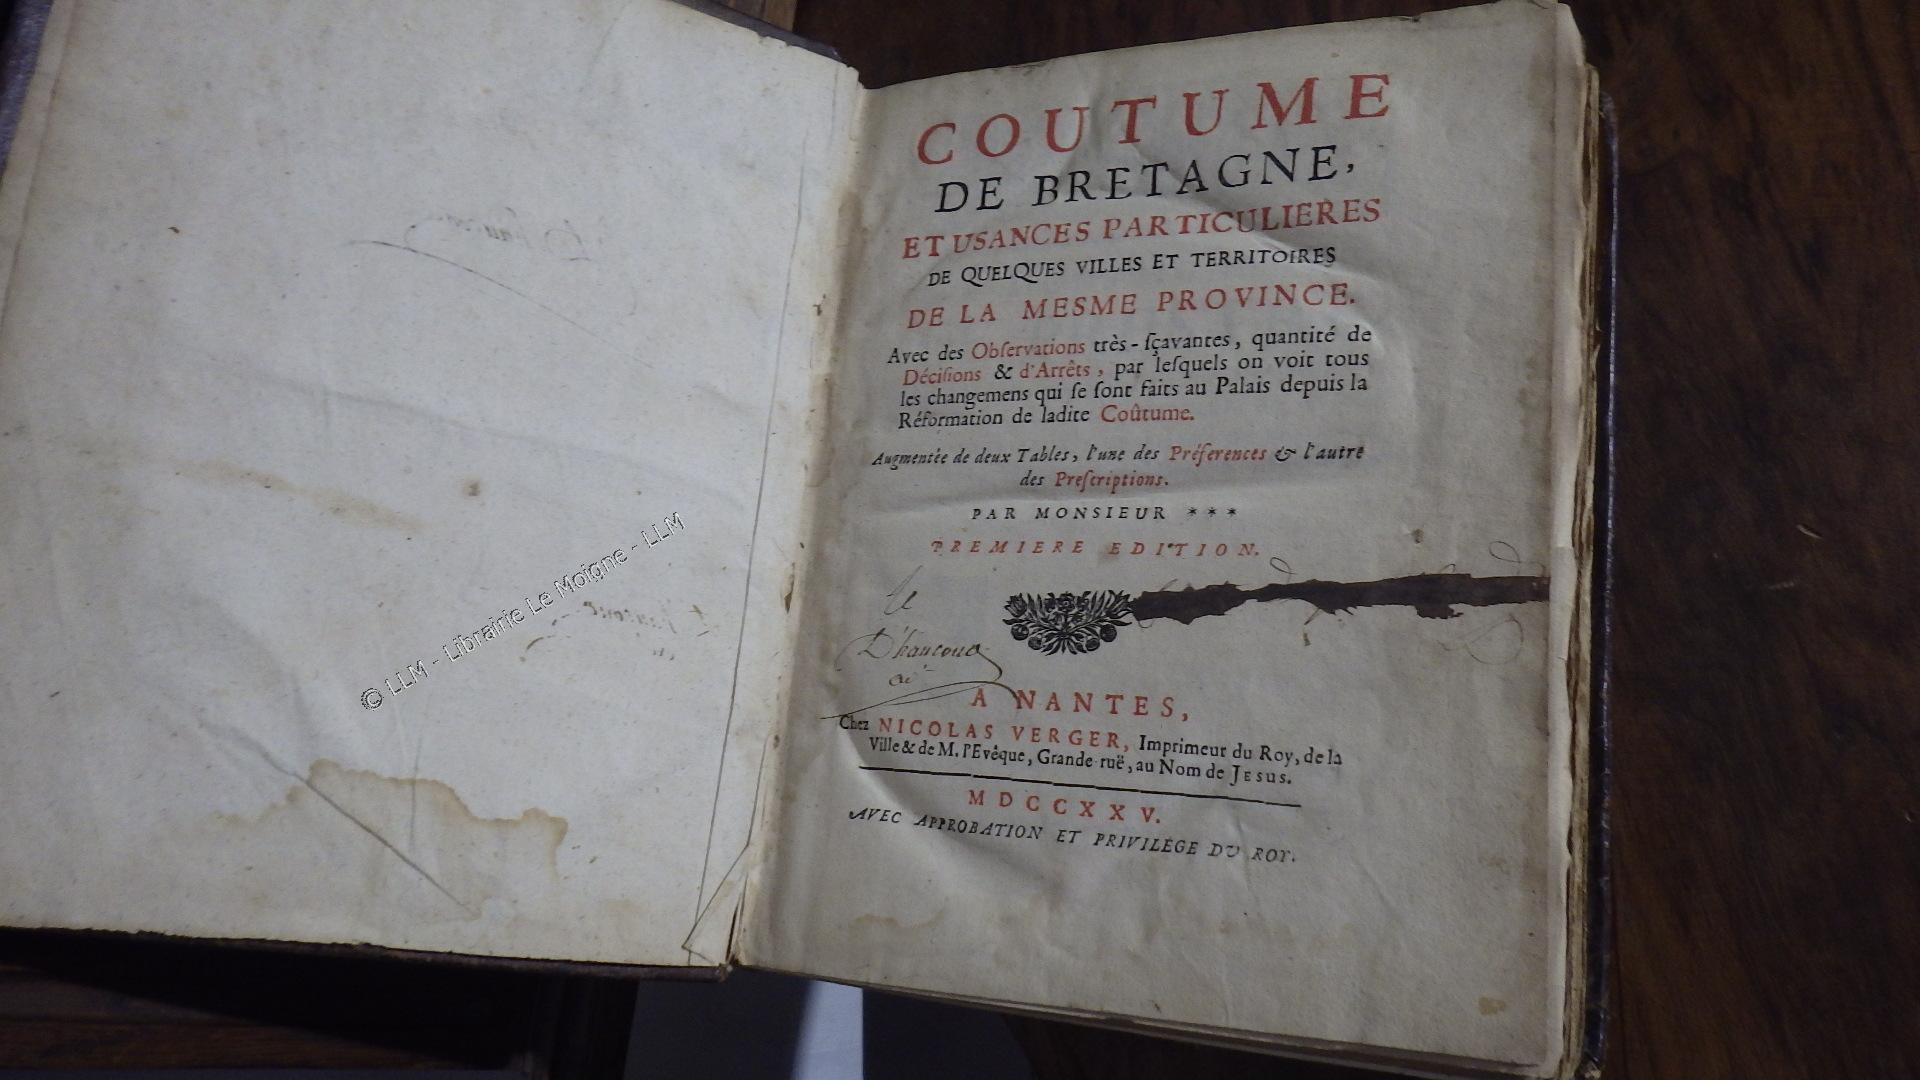 COUTUME
DE BRETAGNE,
ET USANCES PARTICULIERES
DE QUELQUES VILLES ET TERRITOIRES
DE LA MESME PROVINCE.
Avec des Obſervations très-ſçavantes, quantité de
Déciſions & d'Arrêts, par leſquels on voit tous
les changemens qui ſe ſont faits au Palais depuis la
Réformation de ladite Coûtume.
Augmentée de deux Tables, l'une des Préferences & l'autre
des Preſcriptions.
PAR MONSIEUR ***
PREMIERE EDITION.
A NANTES,
Chez NICOLAS VERGER, Imprimeur du Roy, de la
Ville & de M. l'Evêque, Grande-ruë, au Nom de JESUS.
MDCCXXV.
AVEC APPROBATION ET PRIVILEGE DU ROY.
© LLM - Librairie Le Moigne - LLM